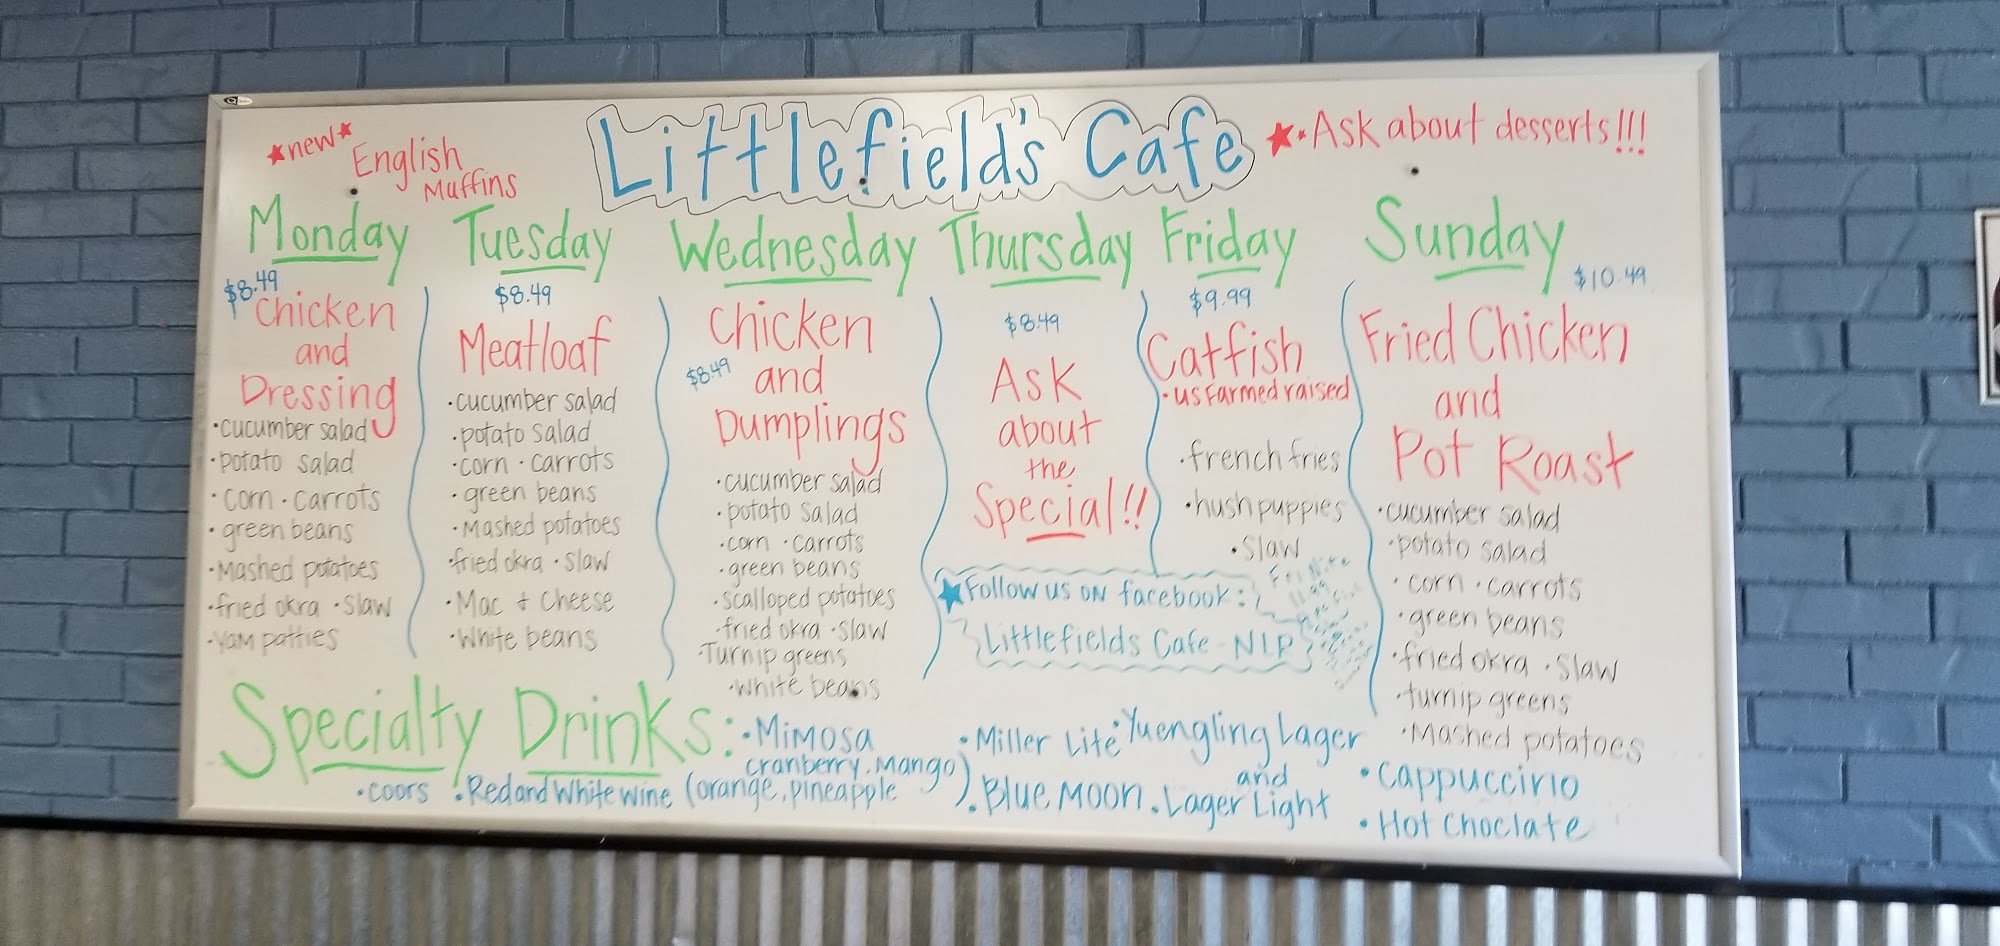 *new*
English
Muffins
Littlefield's Cafe
Ask about desserts!!!
Monday
$8.49
Chicken
and
Dressing
·cucumber salad
·potato salad
·corn ·carrots
·green beans
·Mashed potatoes
·fried okra ·slaw
·Yam patties
Tuesday
$8.49
Meatloaf
·cucumber salad
·potato salad
·corn ·carrots
·green beans
·Mashed potatoes
·fried okra ·slaw
·Mac + Cheese
·White beans
Wednesday
Chicken
$8.49 and
Dumplings
·cucumber salad
·potato salad
·corn ·carrots
·green beans
·scalloped potatoes
·fried okra ·slaw
·Turnip greens
·White beans
Thursday
$8.49
Ask
about
the
Special!!
Friday
$9.99
Catfish
·us Farmed raised
·french fries
·hushpuppies
·slaw
Follow us on facebook:
Littlefields Cafe - NLR
Sunday
$10.49
Fried Chicken
and
Pot Roast
·cucumber salad
·potato salad
·corn ·carrots
·green beans
·fried okra ·slaw
·turnip greens
·Mashed potatoes
Specialty Drinks:
·Coors
·Red and White wine
·Mimosa
(orange, pineapple
cranberry, Mango)
·Miller Lite
·Blue Moon
·Yuengling Lager
and
·Lager Light
·Cappuccirio
·Hot Choclate